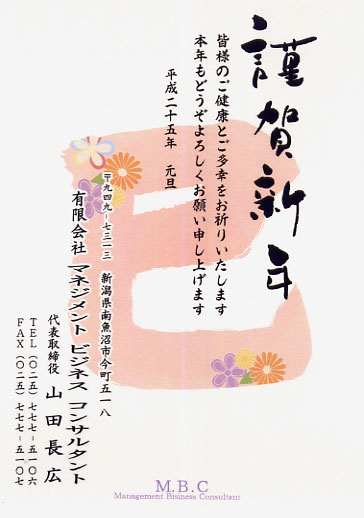 謹賀新年
皆様のご健康とご多幸をお祈りいたします
本年もどうぞよろしくお願い申し上げます
平成二十五年　元旦
巳
〒九四九－七三一三　新潟県南魚沼市今町五一八
有限会社 マネジメント ビジネス コンサルタント
代表取締役　山田長広
ＴＥＬ（〇二五）七七七－五一〇六
ＦＡＸ（〇二五）七七七－五一〇七
M.B.C
Management Bisiness Consultant